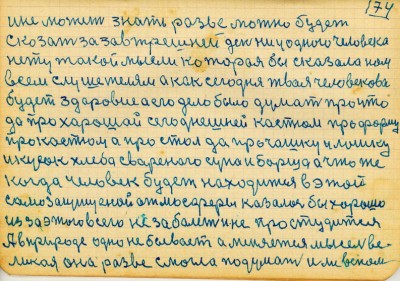 174
и не может знать разве можно будет
сказат за завтрешней ден ни у одного человека
нету такой мысли которая бы сказала нам
всем слушетелям а как сегодня твая человекова
будет здоровие а его дело было думат про што
да про харощай сегоднешней кастюм про форму
про кастюм а про стол да про чашку и ложку
и кусок хлеба свареного супа и борща да ч то же
когда человек будет находится в этой
самозащищеной атмосферы казалос бы хорошо
из за этого всего не заболит и не простудится
А в природе одно не бывает а меняется мысел ве-
ликая она разве смогла подумат или вспом-